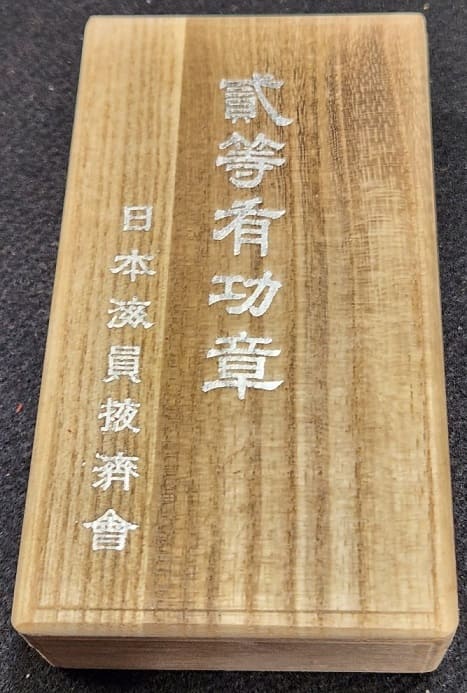 貳等有功章
日本海員掖濟會